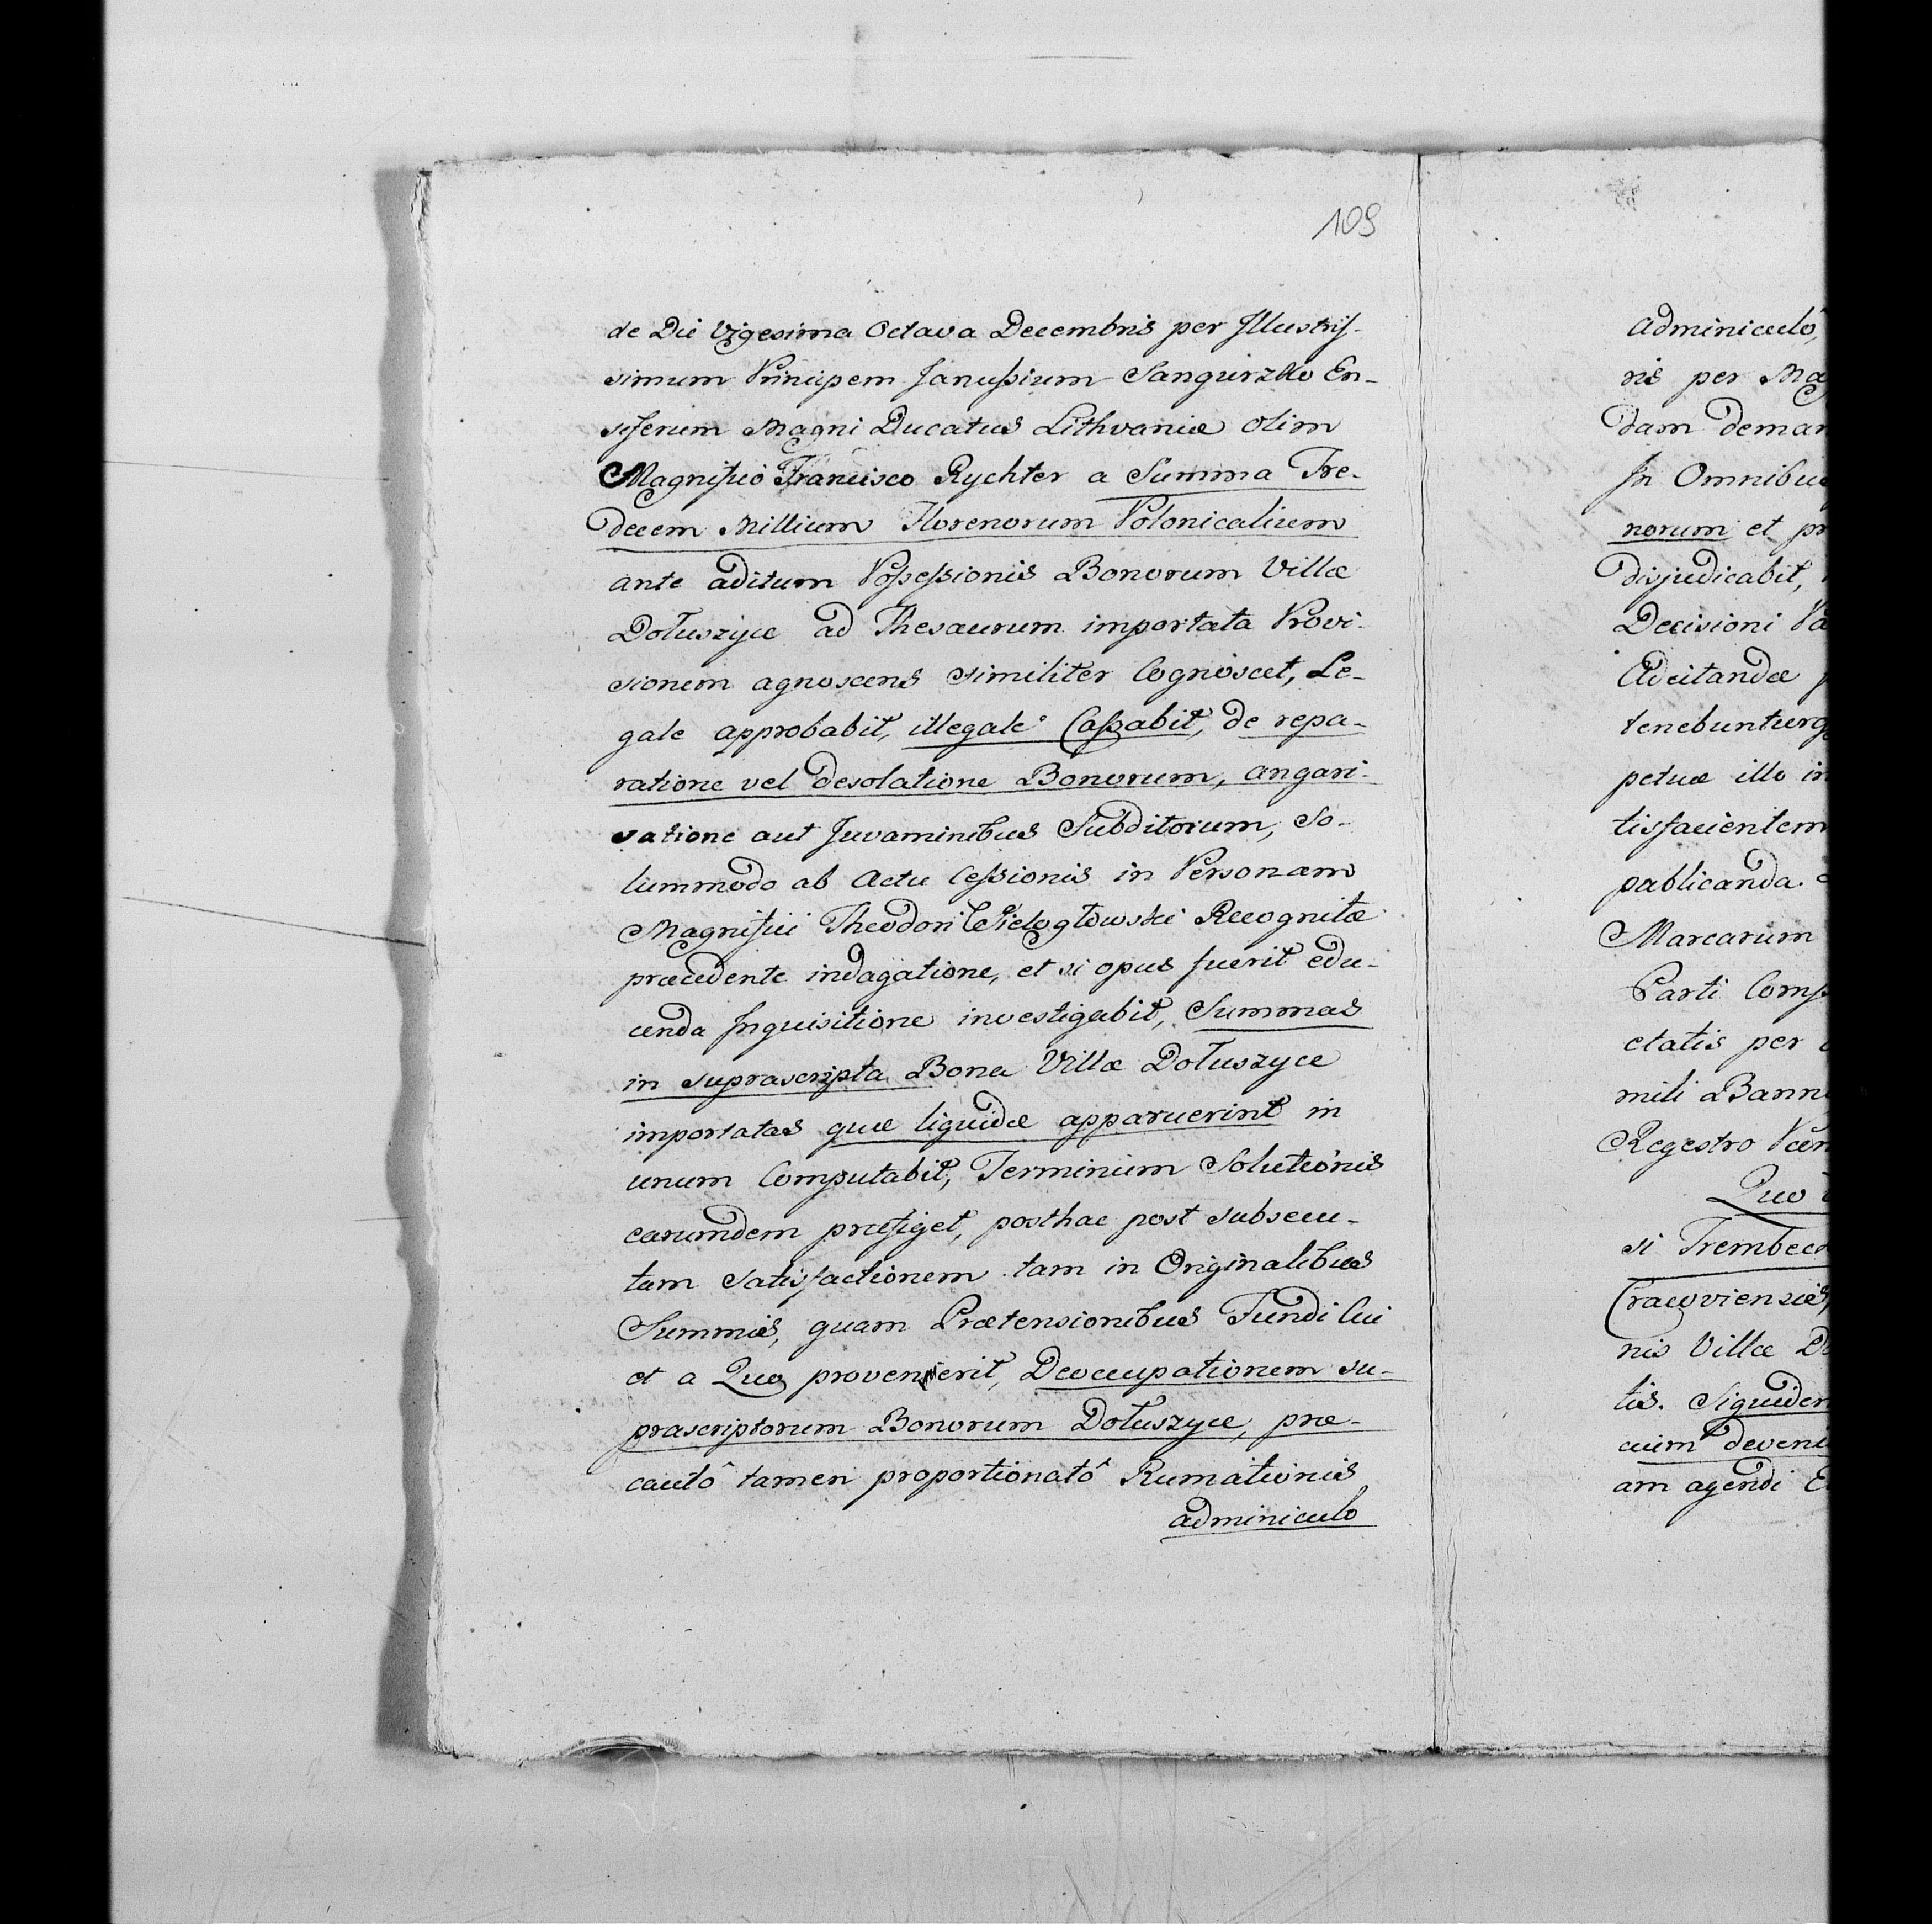 109
de Die Vigesima Octava Decembris per Illustris-
simum Principem Janussium Sanguszko En-
siferum Magni Ducatus Lithvaniæ olim
Magnifico Francisco Rychter a Summa Tre-
decem Millium Florenorum Polonicalium
ante aditum Possessionis Bonorum Villæ
Dołuszyce ad Thesaurum importata Provi-
sionem agnoscens similiter Cognoscet, Le-
gale approbabit, illegale Cassabit, de repa-
ratione vel desolatione Bonorum, angari-
satione aut Juvaminibus Subditorum, So-
lummodo ab Actu Cessionis in Personam
Magnifici Theodori Wielogłowski Recognitæ
præcedente indagatione, et si opus fuerit edu-
cenda Inquisitione investigabit, Summas
in suprascripta Bona Villæ Dołuszyce
importatas quæ liquidæ apparuerint in
unum Computabit, Terminum Solutionis
earumdem præfiget, posthac post subsecu-
tam Satisfactionem tam in Originalibus
Summis, quam Prætensionibus Fundi Cui
et a Quo provenerit, Deoccupationem su-
prascriptorum Bonorum Dołuszyce, præ-
cautô tamen proportionatô Rumationis
adminiculo
adminiculô,
ris per
dam
In Omnibus
norum et
disjudicabit,
Decisioni
Adcitandæ
tenebuntur
petuæ illo
tisfacientem
publicanda.
Marcarum
Parti
etatis per
mili
Regestro
Quo
si
Cracoviensis
nis Villæ
tis.
cum
am agendi